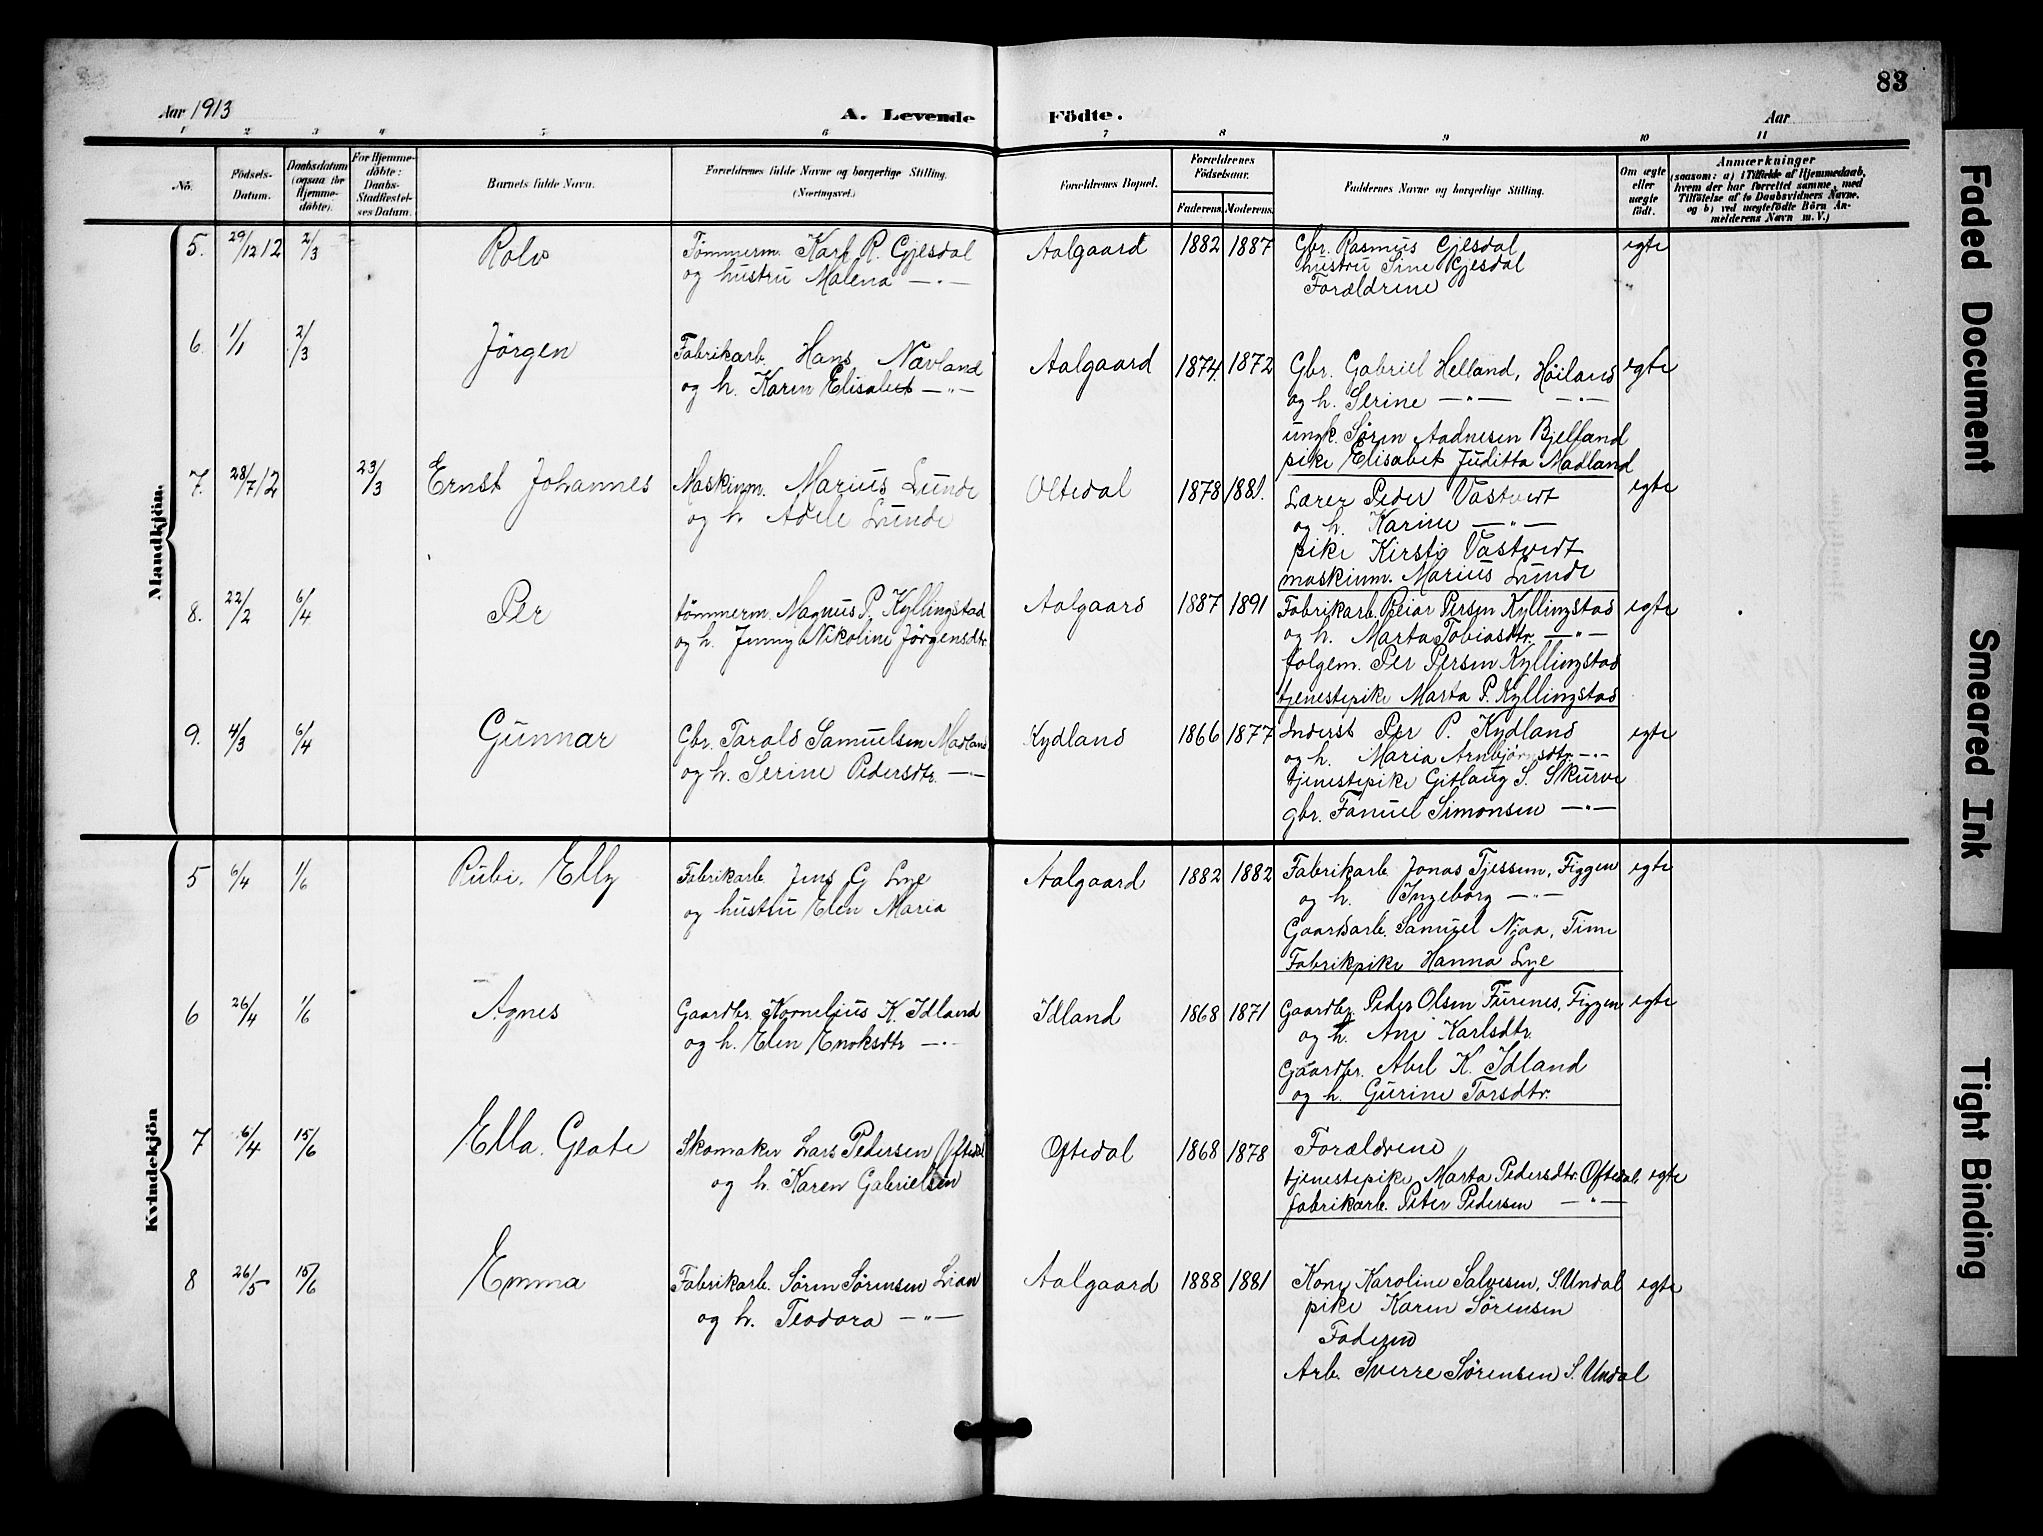 83
Aar 1913
A. Levende Födte.
Aar
1 2 3 4 5 6 7 8 9 10 11
No.
Födsels-Datum.
Daabsdatum (ogsaa for Hjemme-döbte).
For Hjemme-döbte: Daabs-Stadfæstel-ses Datum.
Barnets fulde Navn.
Forældrenes fulde Navne og borgerlige Stilling. (Næringsvei.)
Forældrenes Bopæl.
Forældrenes Födselsaar.
Faderens. Moderens.
Faddernes Navne og borgerlige Stilling.
Om ægte eller uægte födt.
Anmærkninger
(saasom: a) i Tilfælde af Hjemmedaab, hvem der har forrettet samme, med Tilföielse af to Daabsvidners Navne. og b) ved uægtefödte Börn An-melderens Navn m. V.)
Mandkjön.
5. 29/12 12 2/3 Rolv Tømmerm. Karl R. Gjesdal Aalgaard 1882 1887 Gbr. Rasmus Gjesdal egte
og hustru Malena —"— hustru Sine Gjesdal
Forældrene
6. 1/1 2/3 Jörgen Fabrikarb. Hans Navland Aalgaard 1874. 1872 Gbr. Gabriel Helland, Höiland egte
og h. Karen Elisabet —"— og h. Serine —"— —"—
ungk. Søren Aadnesen Bjelland
pike Elisabet Juditta Madland
7. 28/7 12 23/3 Ernst Johannes Maskinm. Marius Lunde Oltedal 1878 1881. Lærer Peder Vastveit egte
og h. Adele Lunde og h. Karine —"—
pike Kirsti Vastveit
maskinm. Marius Lunde
8. 22/2 6/4 Per tömmerm. Magnus P. Kyllingstad Aalgaard 1887 1891 Fabrikarb. Peiar Persen Kyllingstad egte
og h. Jenny Nikoline Jörgensdtr. og h. Marta Tobiasdtr. —"—
folgem. Per Persen Kyllingstad
tjenestepike Marta P. Kyllingstad
9. 4/3 6/4 Gunnar Gbr. Tarald Samuelsen Madland Kydland 1866 1877 Inderst Per P. Kydland egte
og h. Serine Pedersdtr. —"— og h. Maria Arnbjørnsdtr. —"—
tjenestepike Gitlaug S. Skurve
gbr. Fanuel Simonsen —"—
Kvindekjön
5 6/4 1/6 Rubi. Elly Fabrikarb. Jens G Lye Aalgaard 1882 1882 Fabrikarb. Jonas Tjessem, Figgen egte
og hustru Elen Maria og h. Ingeborg —"—
Gaardsarb. Samuel Njaa, Time
Fabrikpike Hanna Lye
6 26/4 1/6 Agnes Gaardbr. Kornelius K. Idland Idland 1868 1871 Gaardbr. Peder Olsen Furenes, Figgen egte
og h. Elen Enoksdtr —"— og h. Ane Karlsdtr.
Gaardbr. Abel K. Idland
og h. Gurine Torsdtr.
7 6/4 15/6 Ella. Geate Skomaker Lars Pedersen Oftedal Oftedal 1868 1878 Forældrene
og h. Karen Gabrielsen tjenestepike Marta Pedersdtr. Oftedal egte
fabrikarb. Peter Pedersen —"—
8 26/5 15/6 Emma Fabrikarb. Søren Sørensen Lian Aalgaard 1888 1881 Kone Karoline Salvesen, S. Undal egte
og h. Teodora —"— pike Karen Sörensen
Faderen
Arb. Sverre Sørensen S. Undal
Faded Document
Smeared Ink
Tight Binding